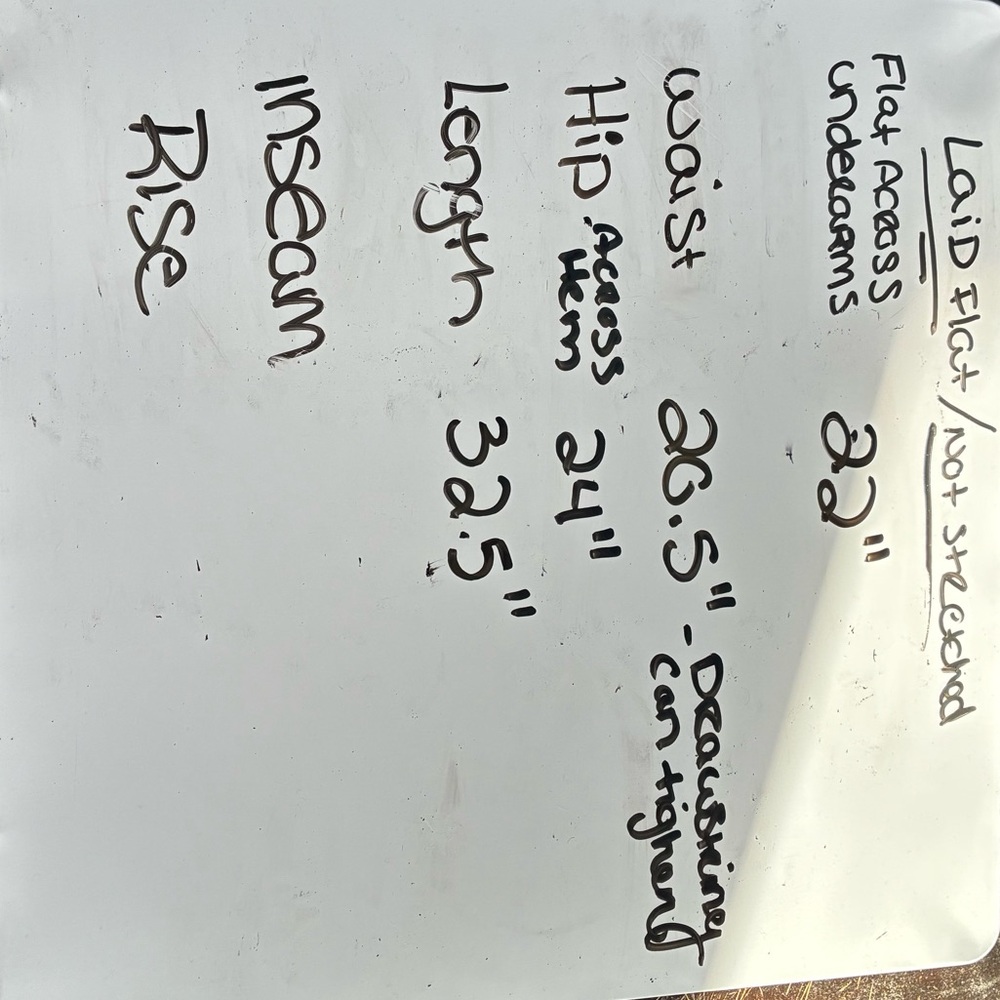 LaiD Flat / Not Stretched
Flat Across
underarms 22"
Waist 20.5" - Drawstring
can tighten
Hip Across
Hem 24"
Length 32.5"
Inseam
Rise